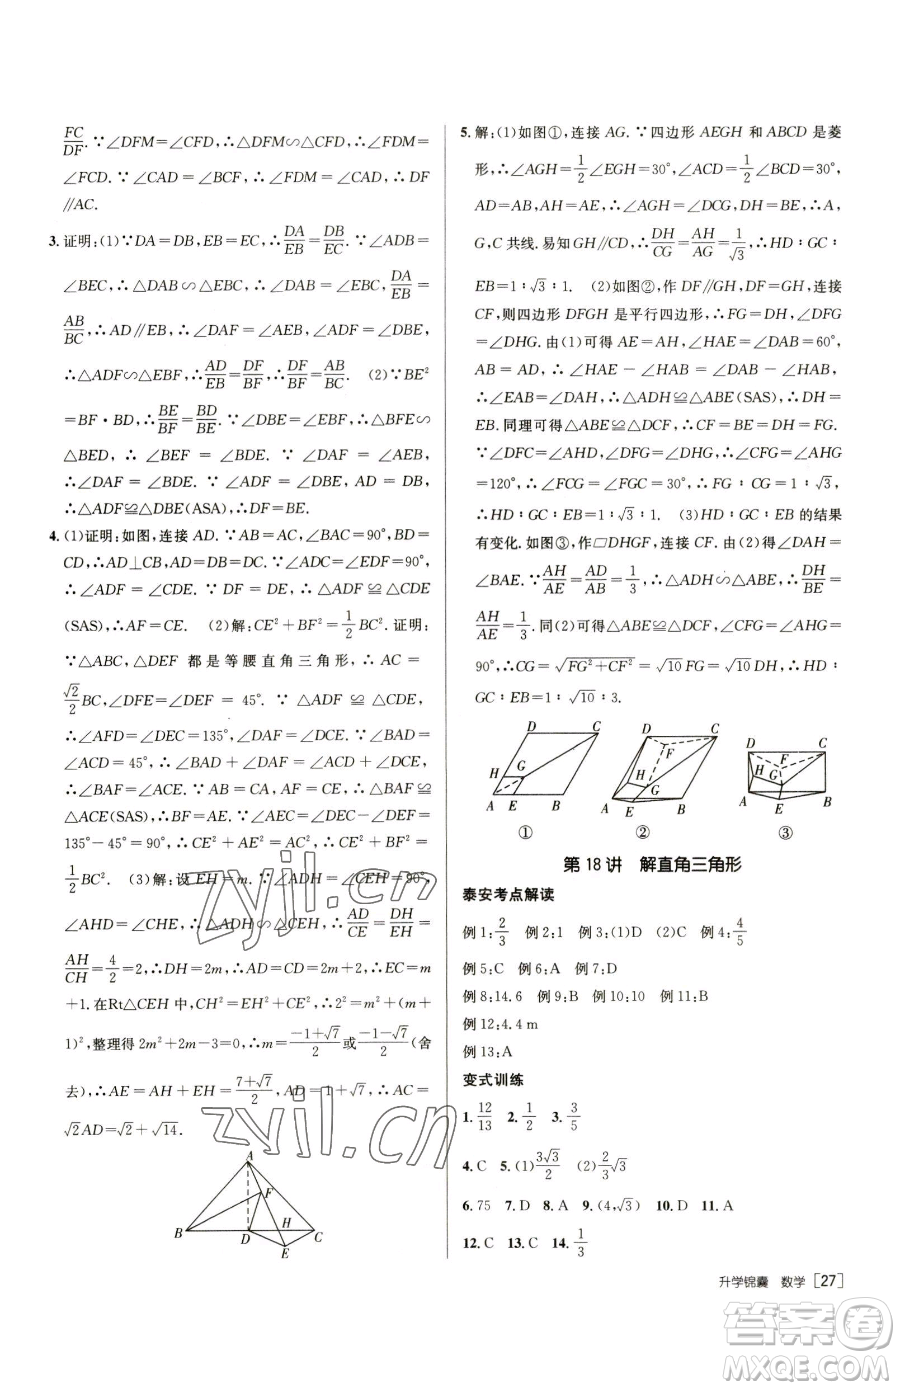 FC/DF. ∵∠DFM=∠CFD,∴△DFM∽△CFD,∴∠FDM=
∠FCD. ∵∠CAD=∠BCF,∴∠FDM=∠CAD,∴DF
∥AC.
3. 证明:(1)∵DA=DB,EB=EC,∴DA/EB=DB/EC. ∵∠ADB=
∠BEC,∴△DAB∽△EBC,∴∠DAB=∠EBC,DA/EB=
AB/BC,∴AD∥EB,∴∠DAF=∠AEB,∠ADF=∠DBE,
∴△ADF∽△EBF,∴AD/EB=DF/BF,∴DF/BF=AB/BC. (2)∵BE²
=BF·BD,∴BE/BF=BD/BE. ∵∠DBE=∠EBF,∴△BFE∽
△BED,∴∠BEF=∠BDE. ∵∠DAF=∠BEF,∴
∠DAF=∠BDE. ∵∠ADF=∠DBE,AD=DB,
∴△ADF≌△DBE(ASA),∴DF=BE.
4. (1)证明:如图,连接AD. ∵AB=AC,∠BAC=90°,BD=
CD,∴AD⊥CB,AD=DB=DC. ∵∠ADC=∠EDF=
90°,∴∠ADF=∠CDE. ∵DF=DE,∴△ADF≌△CDE
(SAS),∴AF=CE. (2)解:CE²+BF²=1/2BC². 证明:
∵△ABC,△DEF都是等腰直角三角形,∴AC=
√2/2BC,∠DFE=∠DEF=45°. ∵△ADF≌△CDE,
∴∠AFD=∠DEC=135°,∠DAF=∠DCE. ∵∠BAD=
∠DAC=45°,∴∠BAF=∠DAF+∠BAD=∠ACD+∠DCE,
∴∠BAF=∠ACE. ∵AB=CA,AF=CE,∴△BAF≌
△ACE(SAS),∴BF=AE. ∵∠AEC=∠DEC-∠DEF=
135°-45°=90°,∴AE²+CE²=AC²,∴CE²+BF²=
1/2BC². (3)解:设EH=m. ∵∠ADH=∠CEH=90°,
∠AHD=∠CHE,∴△ADH∽△CEH,∴AD/CE=DH/EH=
AH/CH=4/2=2,∴DH=2m,∴AD=CD=2m+2,∴CE=m
+1. 在Rt△CEH中,CH²=EH²+CE²,∴2²=m²+(m+
1)²,整理得2m²+2m-3=0,∴m=(-1+√7)/2或(-1-√7)/2(舍
去),∴AE=AH+EH=(7+√7)/2,AD=1+√7,∴AC=
√2AD=√2+√14.
A
F
B
D
H
C
E
5. 解:(1)如图①,连接AG. ∵四边形AEGH和ABCD是菱
形,∴∠AGH=1/2∠EGH=30°,∠ACD=1/2∠BCD=30°,
AD=AB,AH=AE,∴∠AGH=∠DCG,DH=BE,∴A,
G,C共线. 易知GH∥CD,∴DH/CG=AH/AG=1/√3,∴HD∶GC∶
EB=1∶√3∶1. (2)如图②,作DF∥GH,DF=GH,连接
CF,则四边形DFGH是平行四边形,∴FG=DH,∠DFG
=∠DHG. 由(1)可得AE=AH,∠HAE=∠DAB=60°,
∴∠HAE-∠HAB=∠DAB-∠HAB,∴∠DAH=
∠EAB. ∵AD=AB,∴△ADH≌△ABE(SAS),∴DH=
EB. 同理可得△ABE≌△DCF,∴CF=BE=DH=FG.
∵∠DFC=∠AHD,∠DFG=∠DHG,∴∠CFG=∠AHG
=120°,∴∠FCG=∠FGC=30°,∴FG∶CG=1∶√3,
∴HD∶GC∶EB=1∶√3∶1. (3)HD∶GC∶EB的结果
有变化. 如图③,作▱DHGF,连接CF. 由(2)可得∠DAH=
∠BAE. ∵AH/AE=AD/AB=1/3,∴△ADH∽△ABE,∴DH/BE=
AH/AE=1/3. 同(2)可得△ABE≌△DCF,∠CFG=∠AHG=
90°,∴CG=√(FG²+CF²)=√10FG=√10DH,∴HD∶
GC∶EB=1∶√10∶3.
D C H G A E B
D C F H G A E B
D C F H G A B E
① ② ③
第18讲 解直角三角形
泰安考点解读
例1:2/3 例2:1 例3:(1)D 例4:4/5
例5:C 例6:C 例7:D
例8:14.6 例9:B 例10:10 例11:B
例12:4.4 m
例13:A
变式训练
1. 12/13 2. 1/2 3. 3/5
4. C 5. (1)3√3/2 (2)2/3√3
6. 75 7. D 8. A 9. (4,√3) 10. D 11. A
12. C 13. C 14. 1/3
升学锦囊 数学 [27]
zyjl.cn
zyjl.cn
答案圈
MXQE.COM